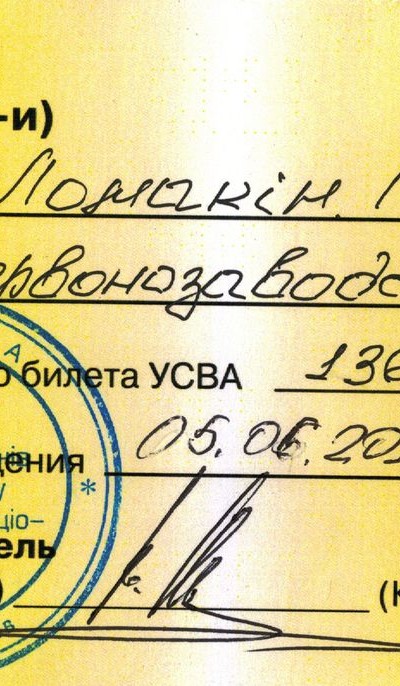 -и)
Ломакін.
ервонозаводс
о билета УСВА 136
дения 05.06.20
ель
ціо–
) (К